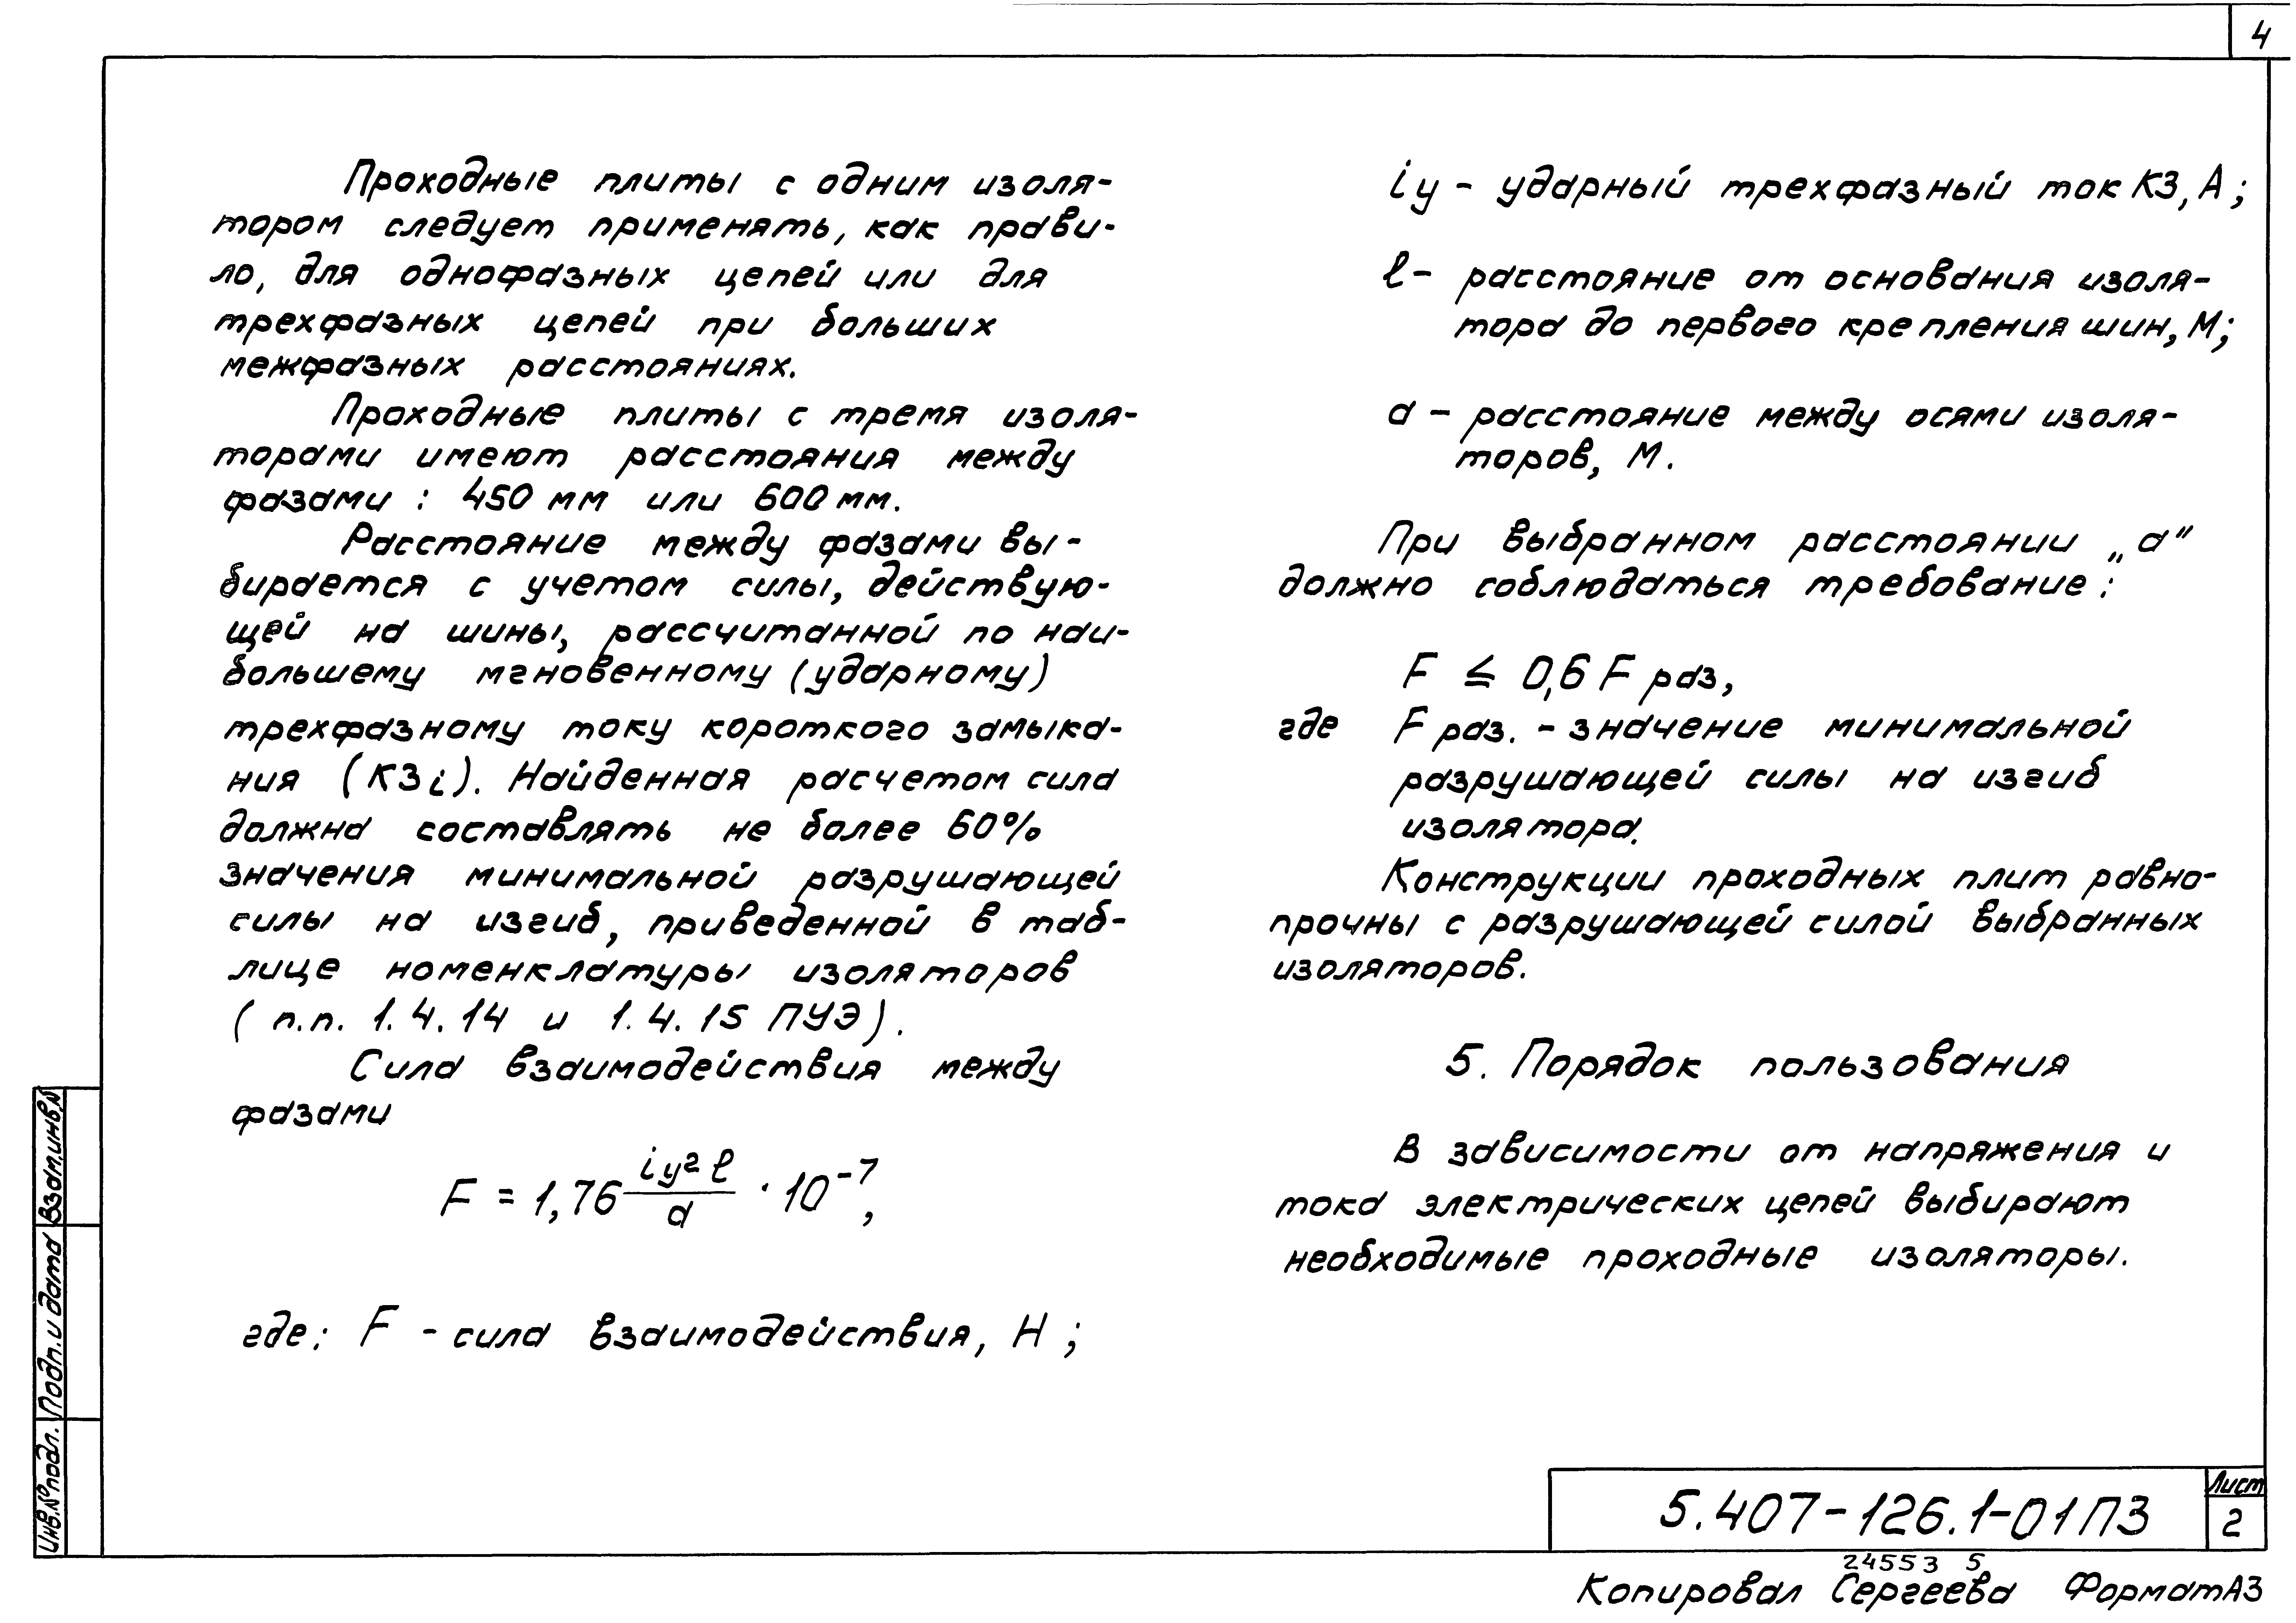 4
Проходные плиты с одним изоля-
тором следует применять, как прави-
ло, для однофазных цепей или для
трехфазных цепей при больших
межфазных расстояниях.
Проходные плиты с тремя изоля-
торами имеют расстояния между
фазами : 450 мм или 600 мм.
Расстояние между фазами вы-
бирается с учетом силы, действую-
щей на шины, рассчитанной по наи-
большему мгновенному (ударному)
трехфазному току короткого замыка-
ния (КЗ i). Найденная расчетом сила
должна составлять не более 60%
значения минимальной разрушающей
силы на изгиб, приведенной в таб-
лице номенклатуры изоляторов
( п.п. 1.4.14 и 1.4.15 ПУЭ).
Сила взаимодействия между
фазами
F = 1,76 iу² ℓ / a · 10⁻⁷,
где: F - сила взаимодействия, Н ;
iу - ударный трехфазный ток КЗ, А ;
ℓ - расстояние от основания изоля-
тора до первого крепления шин, М;
a - расстояние между осями изоля-
торов, М.
При выбранном расстоянии „а"
должно соблюдаться требование :
F ≤ 0,6 F раз,
где F раз. - значение минимальной
разрушающей силы на изгиб
изолятора.
Конструкции проходных плит равно-
прочны с разрушающей силой выбранных
изоляторов.
5. Порядок пользования
В зависимости от напряжения и
тока электрических цепей выбирают
необходимые проходные изоляторы.
Взам.инв.№
Подп. и дата
Инв.№ подл.
5.407-126.1-01ПЗ
Лист
2
24553 5
Копировал Сергеева Формат А3